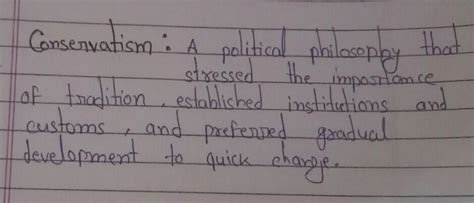 Conservatism : A political philosophy that
stressed the importance
of tradition, established institutions and
customs, and preferred gradual
development to quick change.